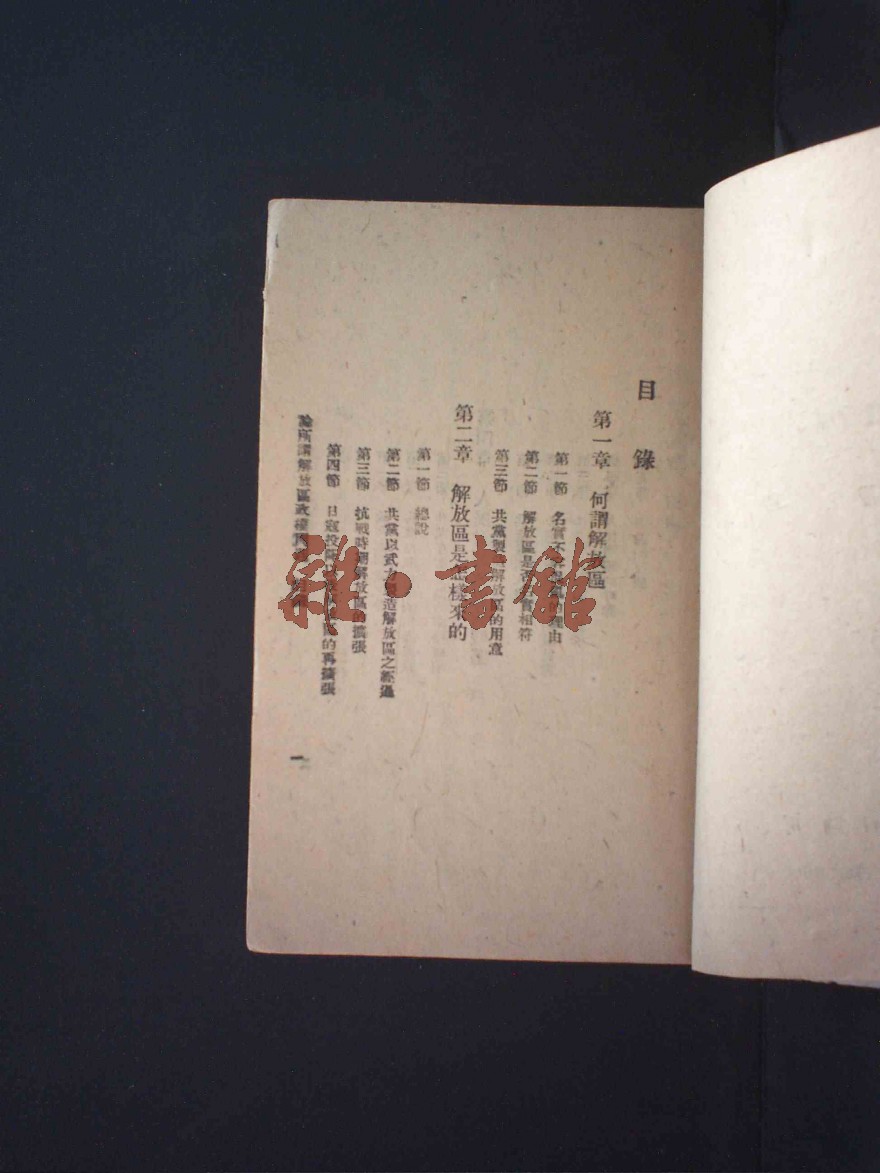 目錄
第一章 何謂解放區
第一節 名實不 的理由
第二節 解放區是否 實相符
第三節 共黨製 解放區的用意
第二章 解放區是怎樣來的
第一節 總說
第二節 共黨以武力 造解放區之經過
第三節 抗戰時期解放區的擴張
第四節 日寇投降 區的再擴張
論所謂解放區政權
一
雜·書館